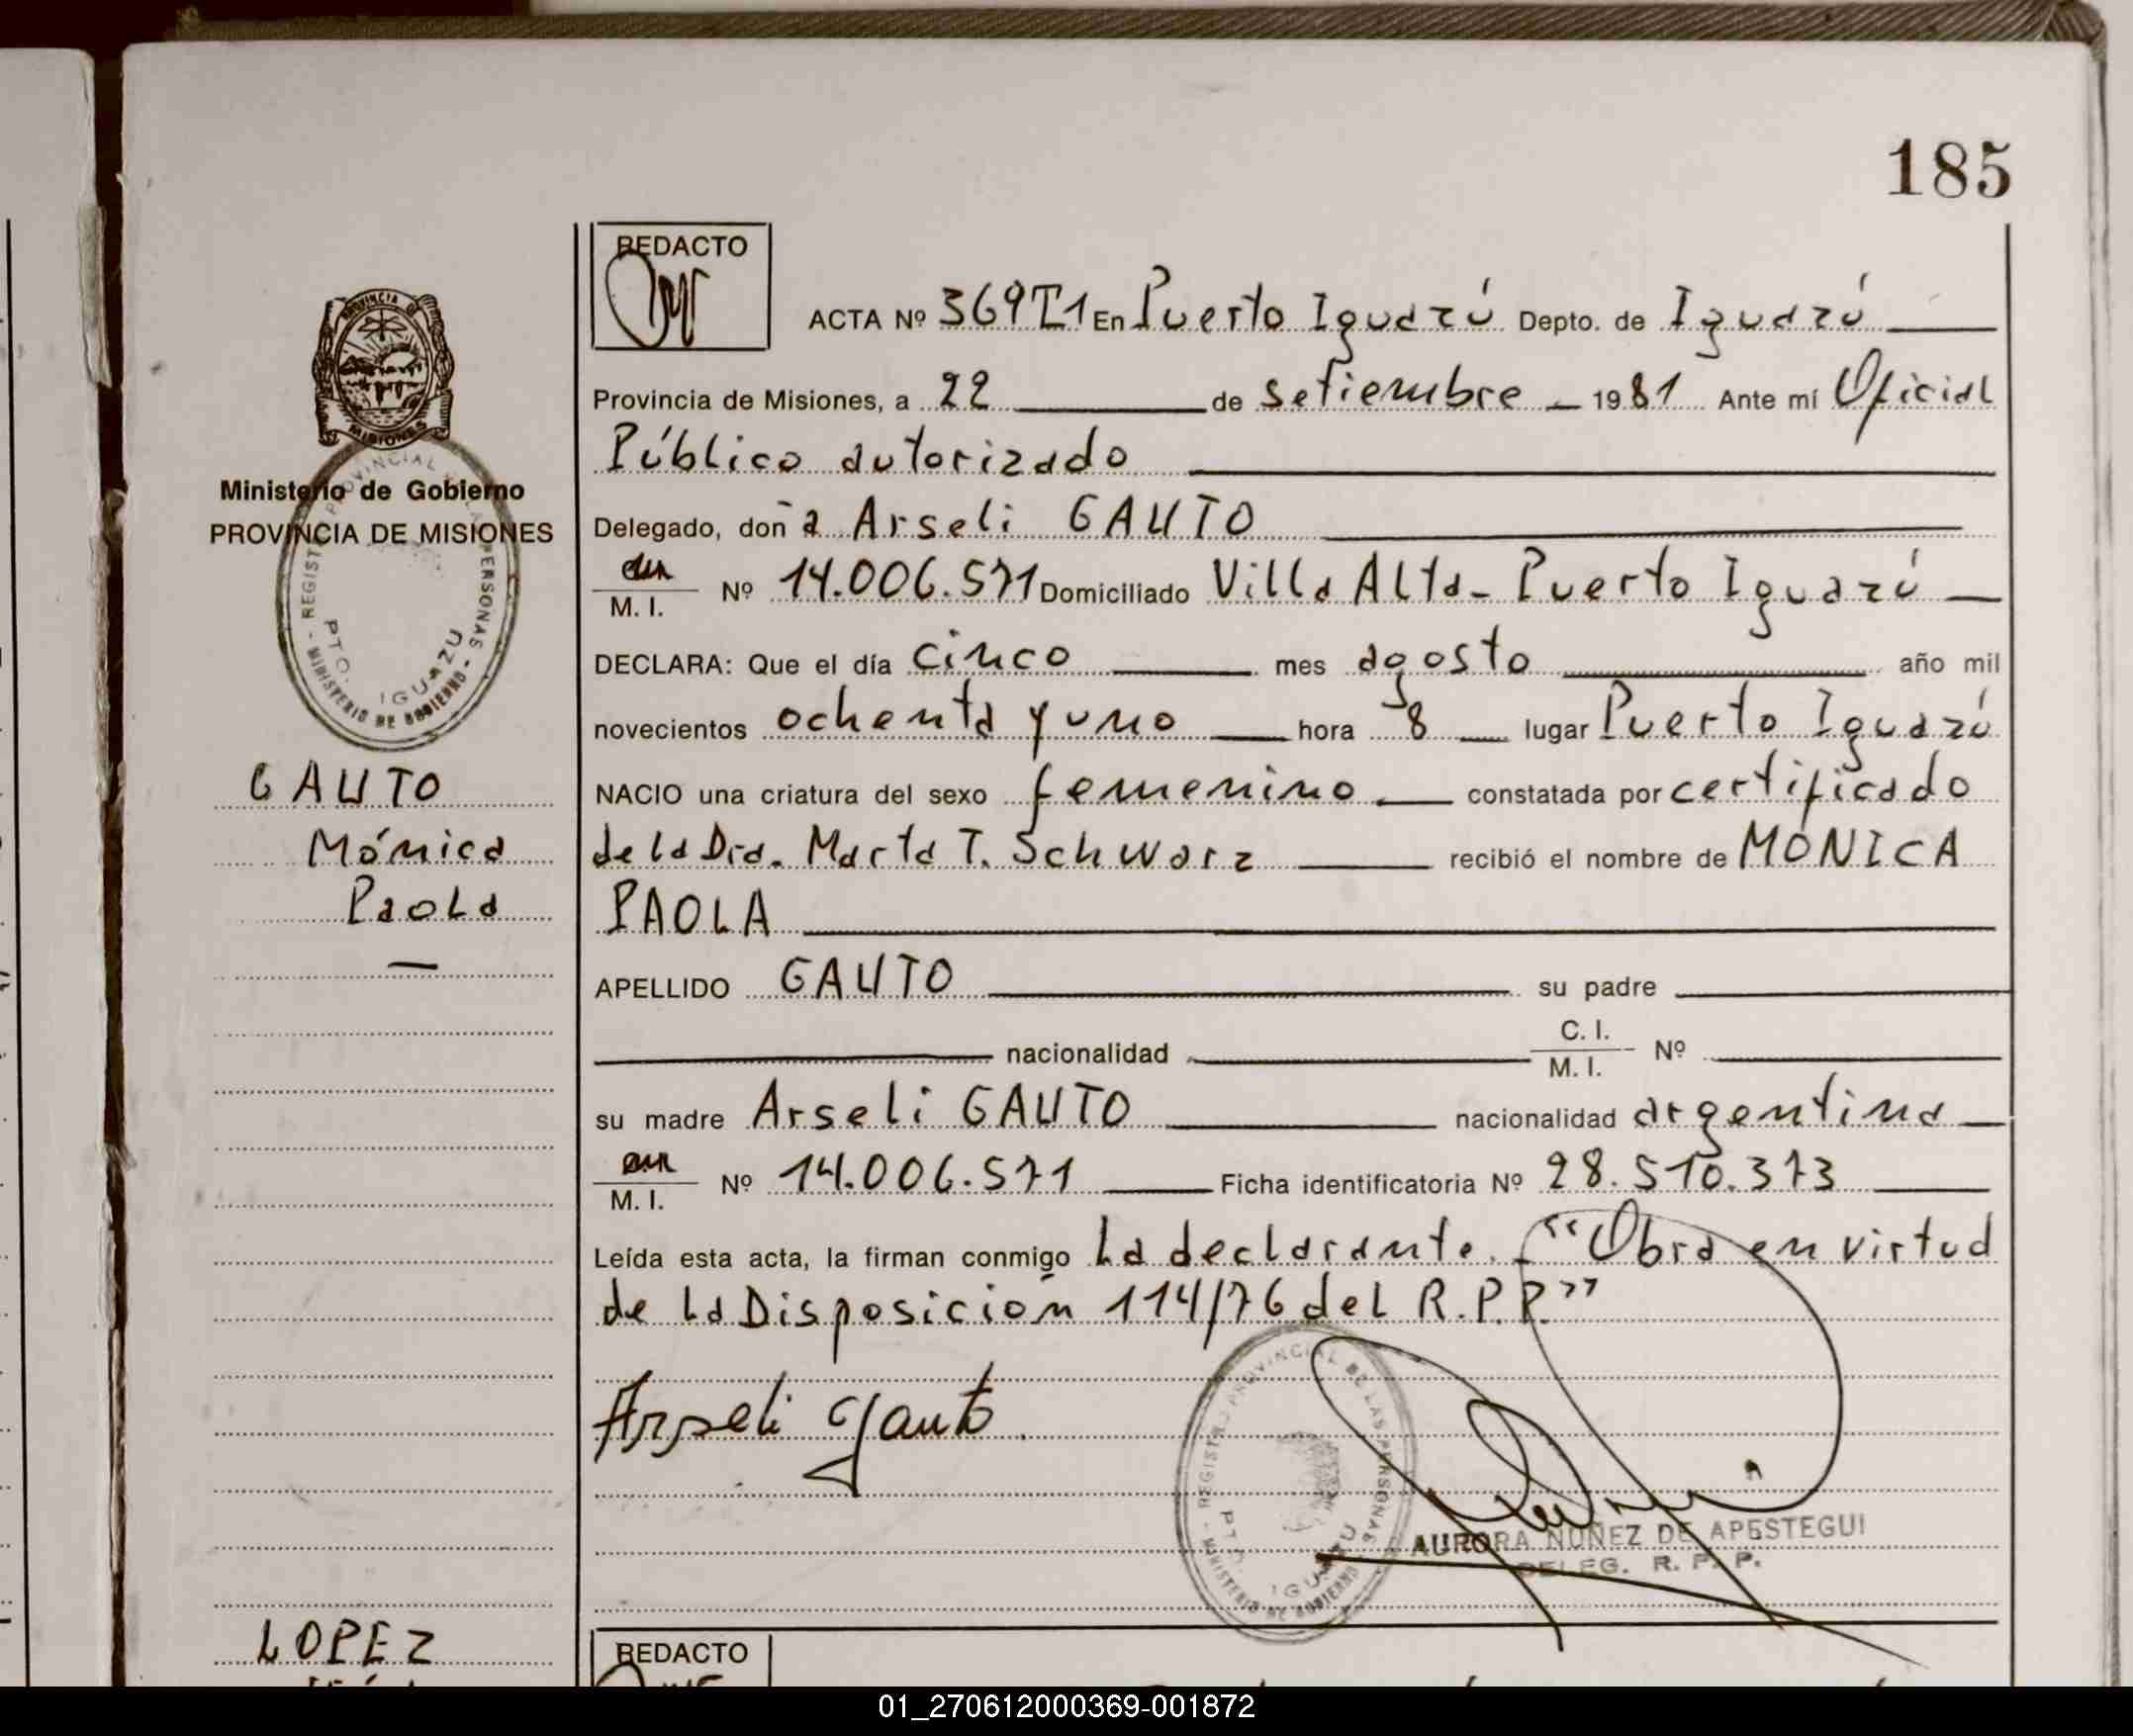 185
REDACTO
ACTA Nº 369T1 En Puerto Iguazú Depto. de Iguazú
Provincia de Misiones, a 22 de setiembre 1981 Ante mí Oficial
Público autorizado
Delegado, doña Arseli GAUTO
M. I. Nº 14.006.571 Domiciliado Villa Alta - Puerto Iguazú
DECLARA: Que el día cinco mes agosto año mil
novecientos ochenta y uno hora 8 lugar Puerto Iguazú
NACIO una criatura del sexo femenino constatada por certificado
de la Dra. Marta T. Schwarz recibió el nombre de MÓNICA
PAOLA
APELLIDO GAUTO su padre
nacionalidad C. I. M. I. Nº
su madre Arseli GAUTO nacionalidad argentina
M. I. Nº 14.006.571 Ficha identificatoria Nº 28.510.373
Leída esta acta, la firman conmigo la declarante. "Obra en virtud
de la Disposición 114/76 del R.P.P."
Arseli Gauto
REGISTRO PROVINCIAL DE LAS PERSONAS
MINISTERIO DE GOBIERNO
PTO. IGUAZU
AURORA NUÑEZ DE APESTEGUI
DELEG. R. P. P.
PROVINCIA DE
MISIONES
Ministerio de Gobierno
PROVINCIA DE MISIONES
REGISTRO PROVINCIAL DE LAS PERSONAS
MINISTERIO DE GOBIERNO
PTO. IGUAZU
GAUTO
Mónica
Paola
LOPEZ
REDACTO
01_270612000369-001872